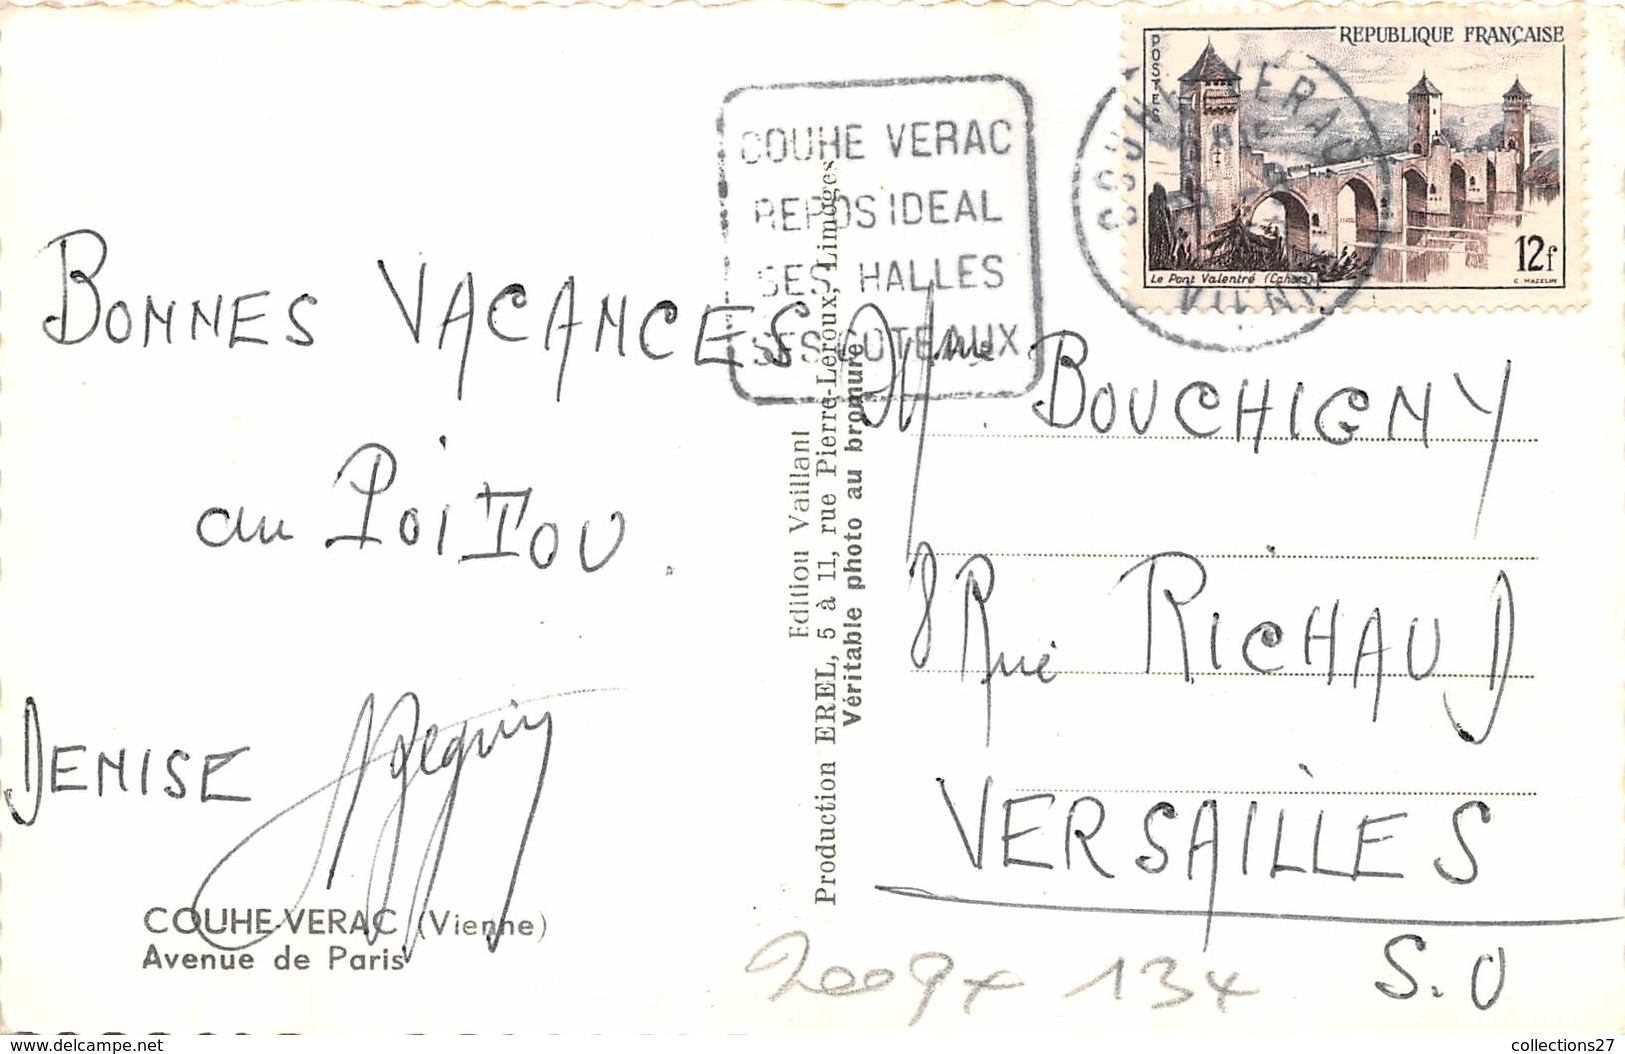 COUHE VERAC
REPOS IDEAL
SES HALLES
SES COTEAUX
REPUBLIQUE FRANÇAISE
POSTES
Le Pont Valentré (Cahors)
12f
C. MAZELIN
COUHE VERAC
VIENNE
BONNES VACANCES
au POITOU.
DENISE
COUHE-VERAC (Vienne)
Avenue de Paris
Edition Vaillant
Production EREL, 5 à 11, rue Pierre-Leroux, Limoges
Véritable photo au bromure
Mme BOUCHIGNY
8 Rue RICHAUD
VERSAILLES
S.O
2009x 134
delcampe.net
collections27